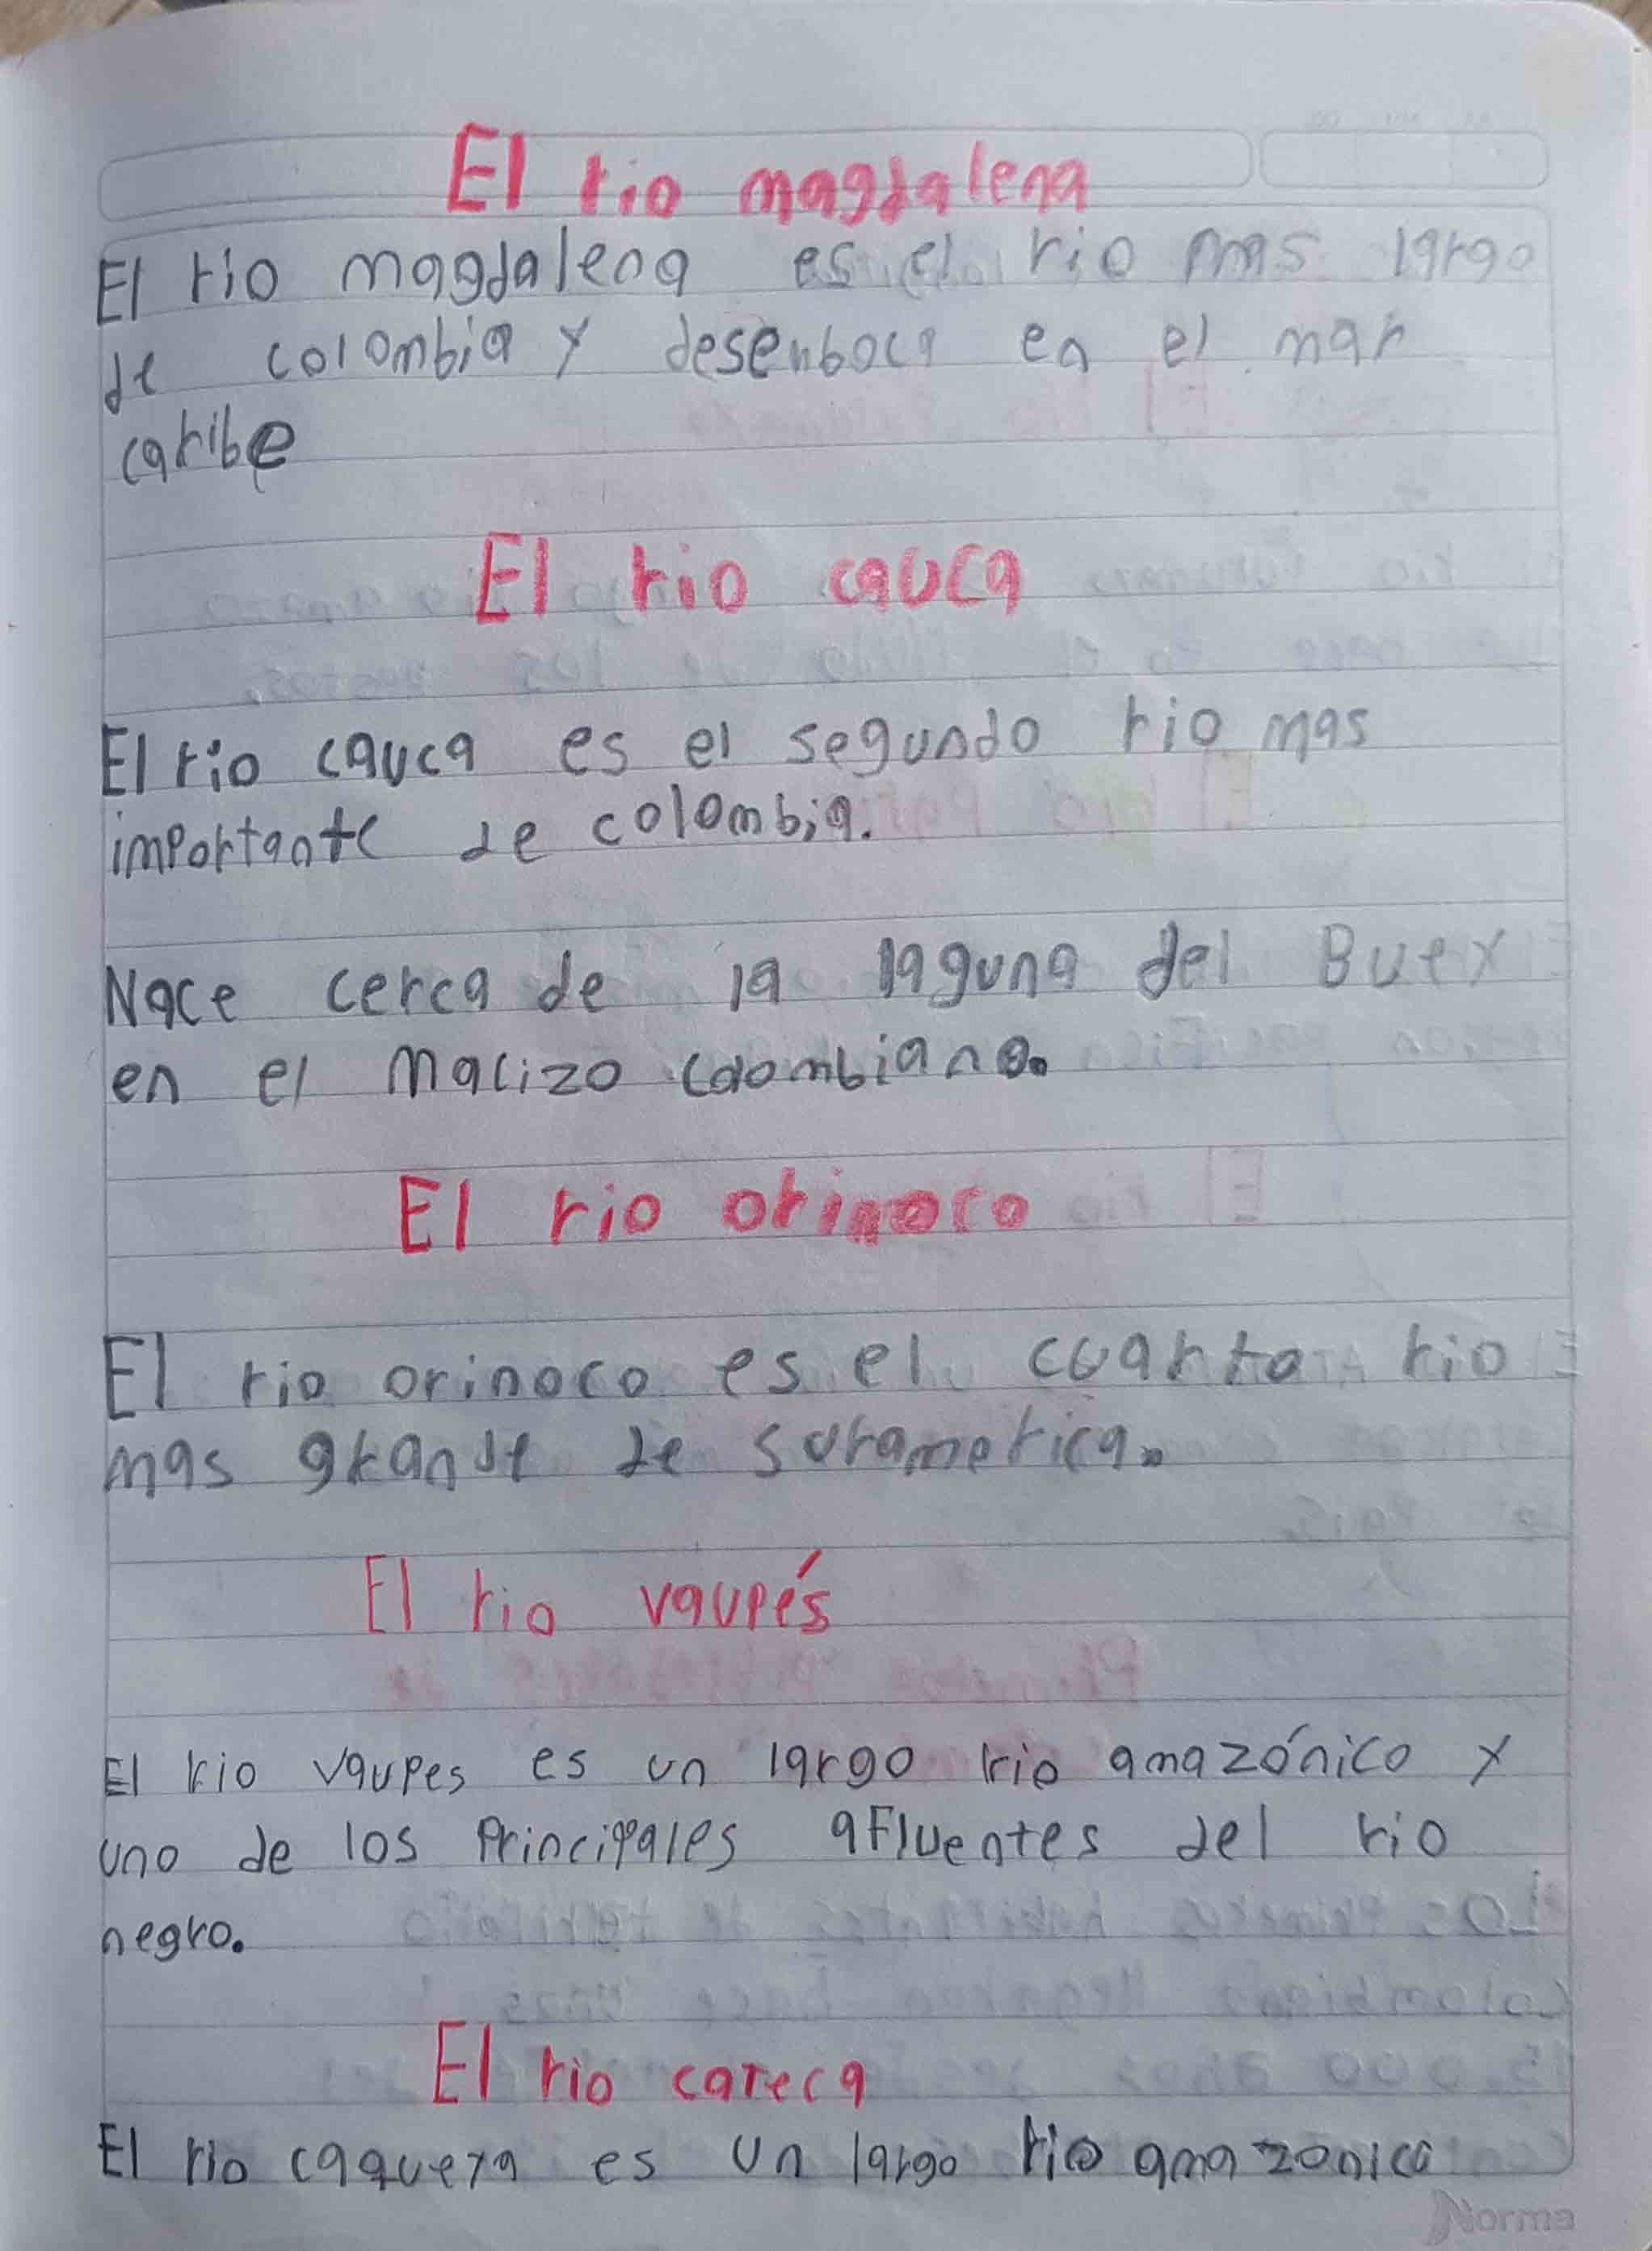 El rio magdalena
El rio magdalena es el rio mas largo
de colombia y desenboca en el mar
caribe
El rio cauca
El rio cauca es el segundo rio mas
importante de colombia.
Nace cerca de la laguna del Buey
en el Macizo Colombiano.
El rio orinoco
El rio orinoco es el cuarto rio
mas grande de suramerica.
El rio vaupés
El rio vaupes es un largo rio amazónico y
uno de los Principales afluentes del rio
negro.
El rio cateca
El rio caqueya es un largo rio amazonico
Norma